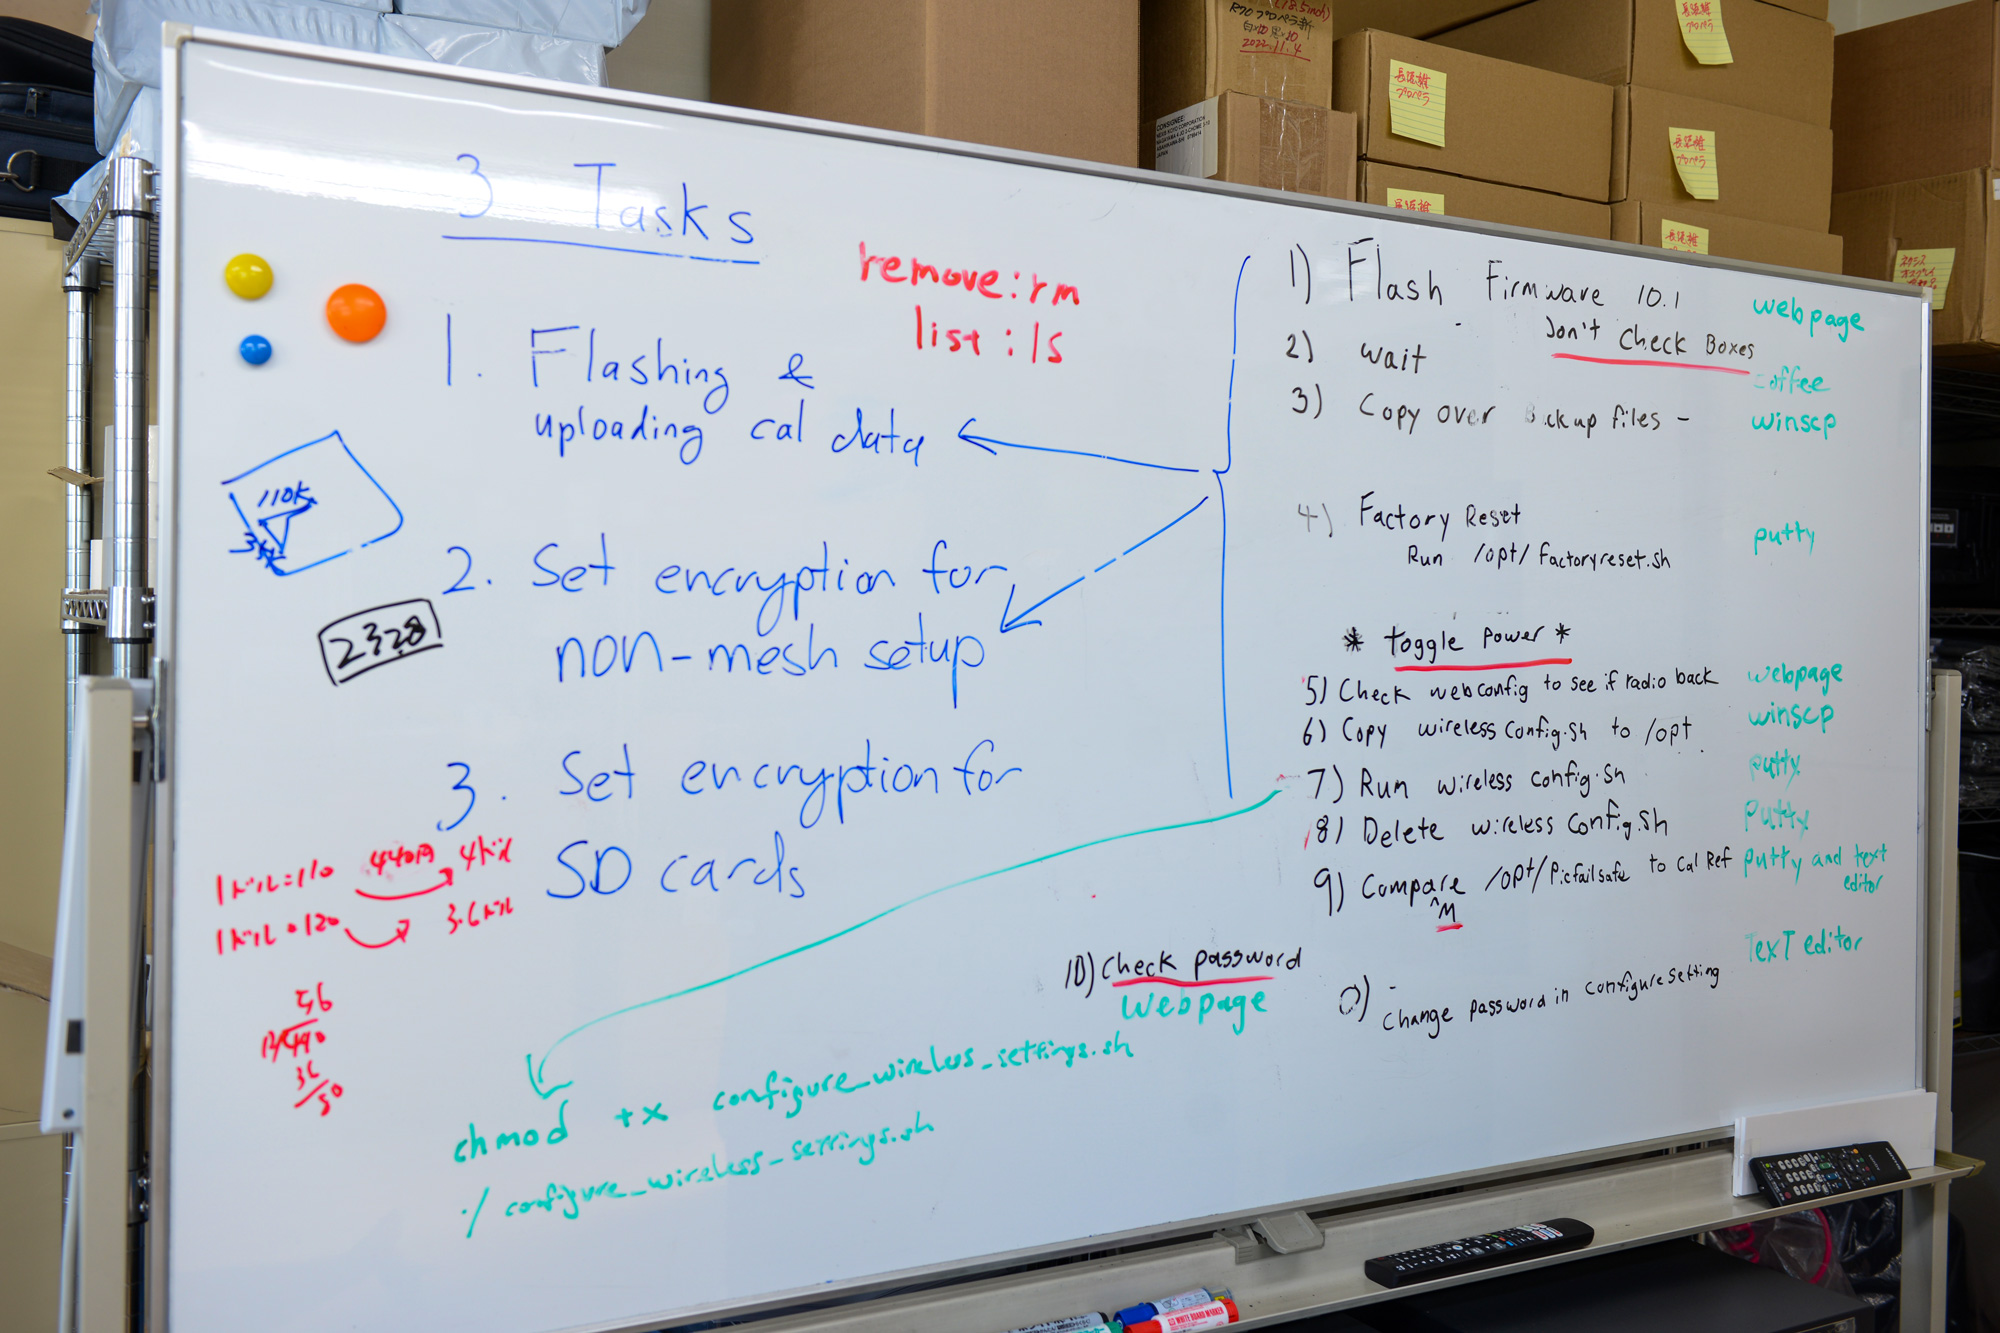 3 Tasks
remove:rm
list:ls
1. Flashing &
uploading cal data
2. Set encryption for
non-mesh setup
3. Set encryption for
SD cards
110K
2328
1ドル=110 440円 4ドル
1ドル=120 3.6ドル
36
50
1) Flash Firmware 10.1 webpage
Don't Check Boxes
2) wait coffee
3) Copy over Backup files - winscp
4) Factory Reset putty
Run /opt/factoryreset.sh
* toggle power *
5) Check webconfig to see if radio back webpage
6) Copy wireless config.sh to /opt winscp
7) Run wireless config.sh putty
8) Delete wireless config.sh putty
9) Compare /opt/Picfailsafe to Cal Ref putty and text
editor
^M
10) Check password
Webpage
0) Change password in configure setting TexT editor
chmod +x configure_wireless_settings.sh
./configure_wireless_settings.sh
R70 プロペラ新
2022.11.4
CONSIGNEE:
JAPAN
長距離
プロペラ
長距離
プロペラ
長距離
プロペラ
長距離
長距離
WHITE BOARD MARKER